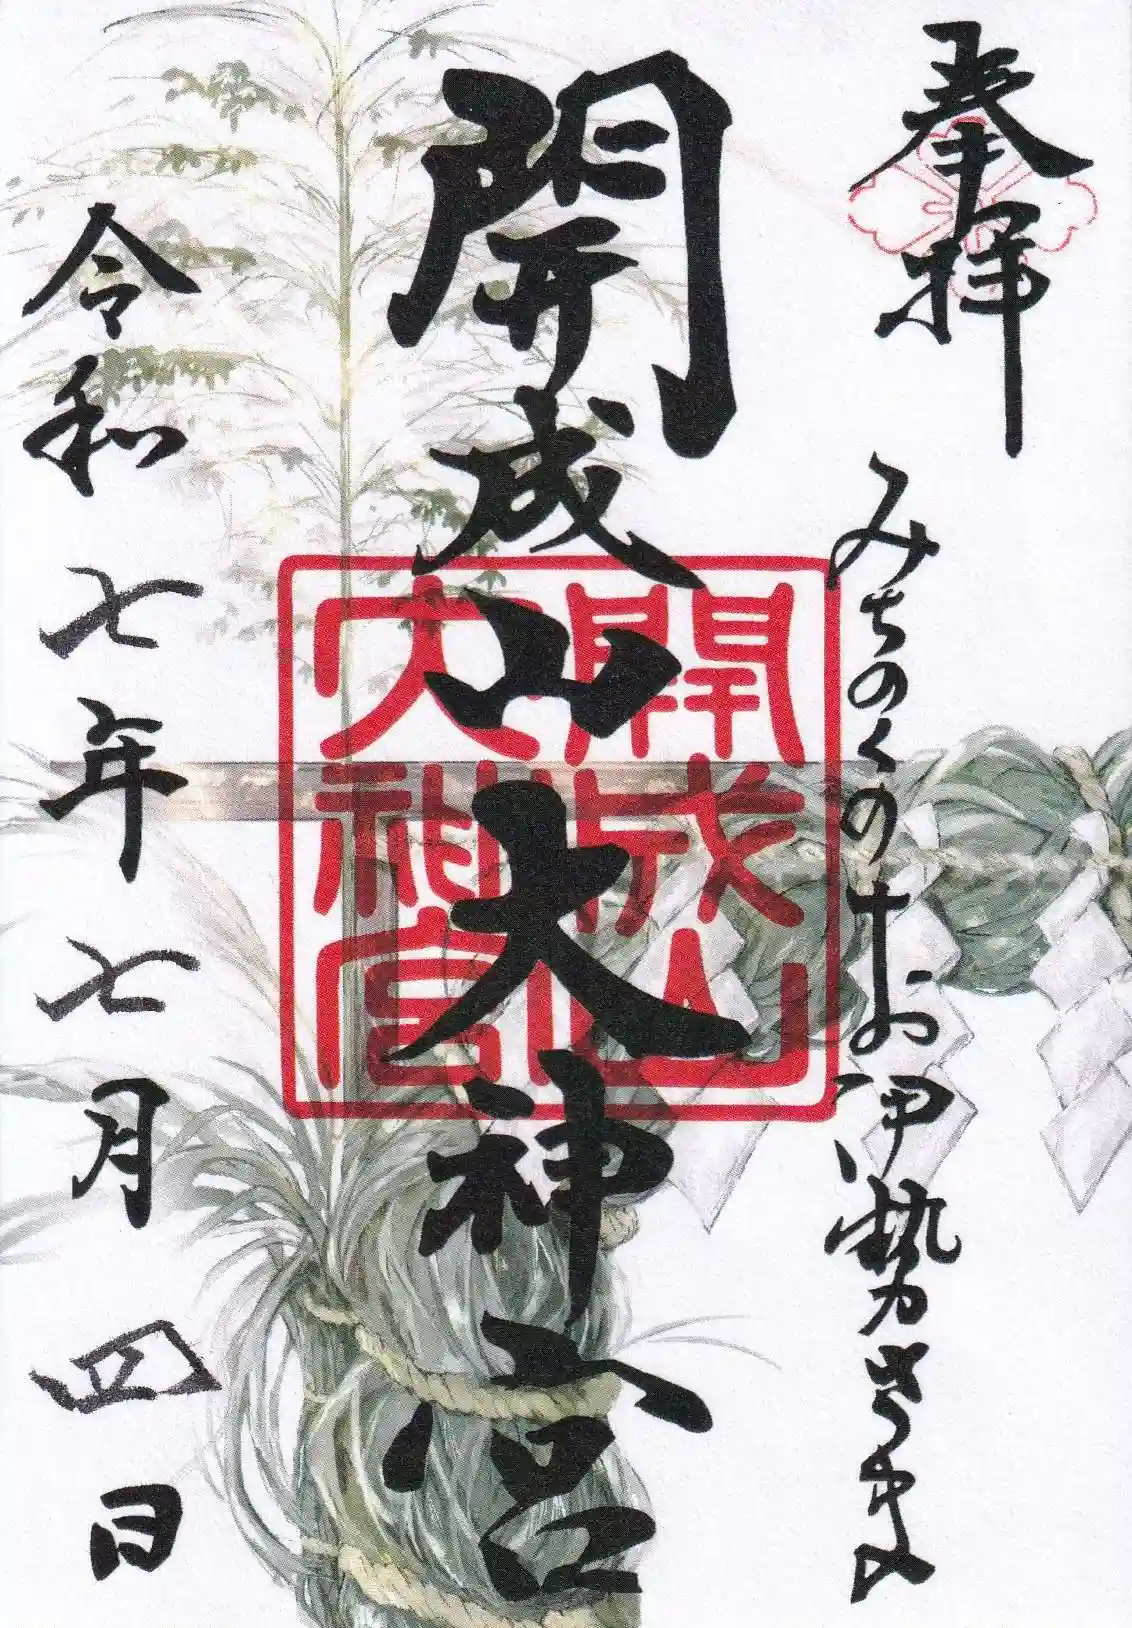 奉拝
みちのくのすお伊勢さま
開成山大神宮
開成山
大神宮
令和七年七月四日